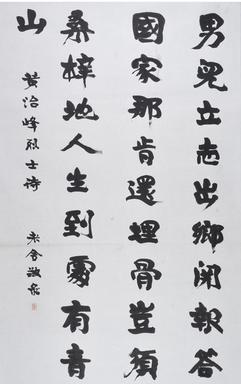 男兒立志出鄉関報答
國家那肯還埋骨豈須
桑梓地人生到處有青
山
黃治峰烈士詩
老舍敬录